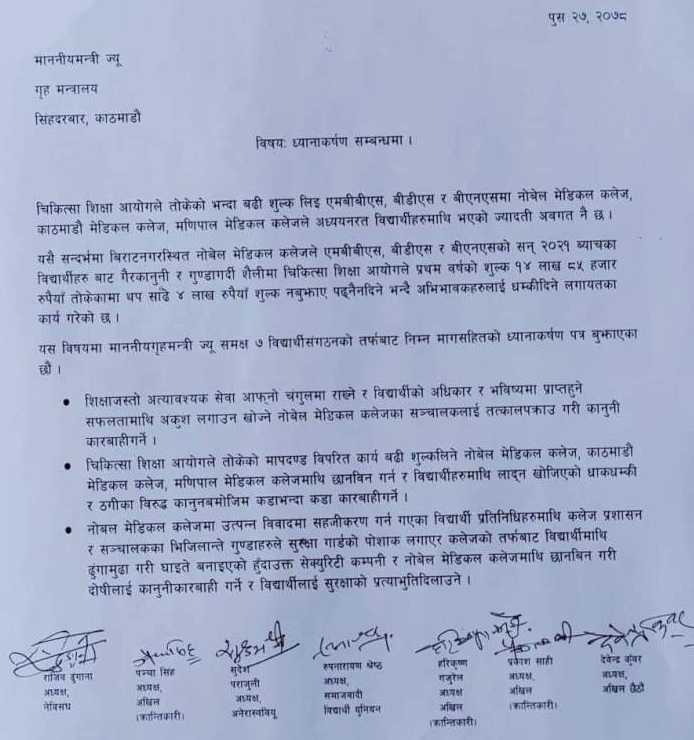 पुस २७, २०७८
माननीयमन्त्री ज्यू
गृह मन्त्रालय
सिंहदरबार, काठमाडौ
विषय: ध्यानाकर्षण सम्बन्धमा ।
चिकित्सा शिक्षा आयोगले तोकेको भन्दा बढी शुल्क लिइ एमबीबीएस, बीडीएस र बीएनएसमा नोबेल मेडिकल कलेज,
काठमाडौ मेडिकल कलेज, मणिपाल मेडिकल कलेजले अध्ययनरत विद्यार्थीहरुमाथि भएको ज्यादती अवगत नै छ ।
यसै सन्दर्भमा बिराटनगरस्थित नोबेल मेडिकल कलेजले एमबीबीएस, बीडीएस र बीएनएसको सन् २०२१ ब्याचका
विद्यार्थीहरु बाट गैरकानुनी र गुण्डागर्दी शैलीमा चिकित्सा शिक्षा आयोगले प्रथम वर्षको शुल्क १४ लाख ८५ हजार
रुपैयाँ तोकेकामा थप साढे ४ लाख रुपैयाँ शुल्क नबुझाए पढ्नैनदिने भन्दै अभिभावकहरुलाई धम्कीदिने लगायतका
कार्य गरेको छ ।
यस विषयमा माननीयगृहमन्त्री ज्यू समक्ष ७ विद्यार्थीसंगठनको तर्फबाट निम्न मागसहितको ध्यानाकर्षण पत्र बुझाएका
छौं ।
• शिक्षाजस्तो अत्यावश्यक सेवा आफ्नो चंगुलमा राख्ने र विद्यार्थीको अधिकार र भविष्यमा प्राप्तहुने
सफलतामाथि अंकुश लगाउन खोज्ने नोबेल मेडिकल कलेजका सञ्चालकलाई तत्कालपक्राउ गरी कानुनी
कारबाहीगर्ने ।
• चिकित्सा शिक्षा आयोगले तोकेको मापदण्ड विपरित कार्य बढी शुल्कलिने नोबेल मेडिकल कलेज, काठमाडौ
मेडिकल कलेज, मणिपाल मेडिकल कलेजमाथि छानविन गर्न र विद्यार्थीहरुमाथि लाद्न खोजिएको धाकधम्की
र ठगीका विरुद्ध कानुनबमोजिम कडाभन्दा कडा कारबाहीगर्ने ।
• नोबल मेडिकल कलेजमा उत्पन्न विवादमा सहजीकरण गर्न गएका विद्यार्थी प्रतिनिधिहरुमाथि कलेज प्रशासन
र सञ्चालकका भिजिलान्ते गुण्डाहरुले सुरक्षा गार्डको पोशाक लगाएर कलेजको तर्फबाट विद्यार्थीमाथि
ढुंगामुढा गरी घाइते बनाइएको हुँदाउक्त सेक्युरिटी कम्पनी र नोबेल मेडिकल कलेजमाथि छानबिन गरी
दोषीलाई कानुनीकारबाही गर्ने र विद्यार्थीलाई सुरक्षाको प्रत्याभुतिदिलाउने ।
राजिव ढुंगाना पञ्चा सिंह सुदेश रुपनारायण श्रेष्ठ हरिकृष्ण प्रकाश साही देवेन्द्र कुंवर
अध्यक्ष, अध्यक्ष, पराजुली अध्यक्ष, गजुरेल अध्यक्ष, अध्यक्ष,
नेविसंघ अखिल अध्यक्ष, समाजवादी अध्यक्ष अखिल अखिल छैठौं
(क्रान्तिकारी) अनेरास्ववियू विद्यार्थी युनियन अखिल (क्रान्तिकारी)
(क्रान्तिकारी)